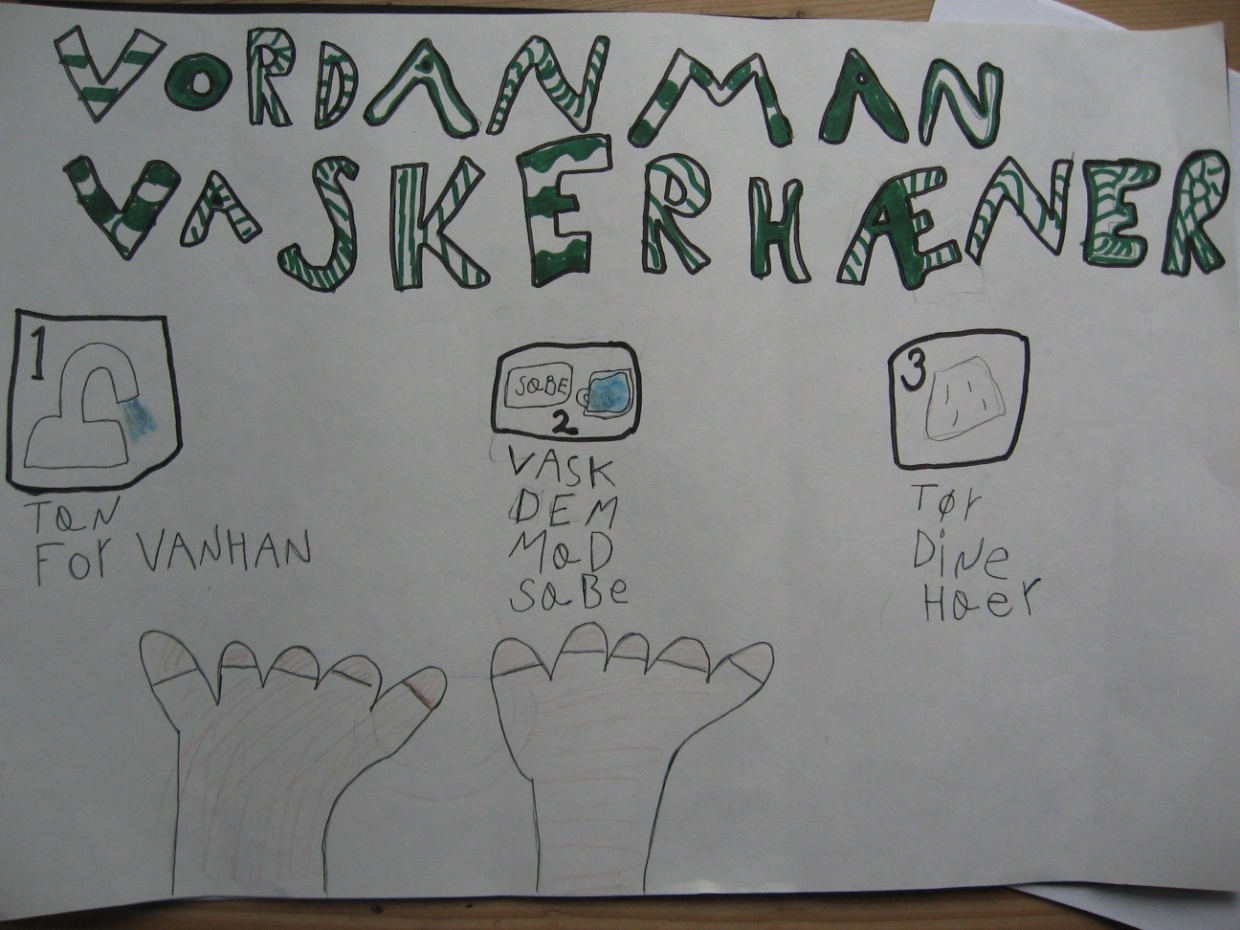 VORDAN MAN
VASKER HÆNER
1
TaN
For VANHAN
SaBE
2
VASK
DEM
MaD
SaBe
3
Tør
DiNe
Haer